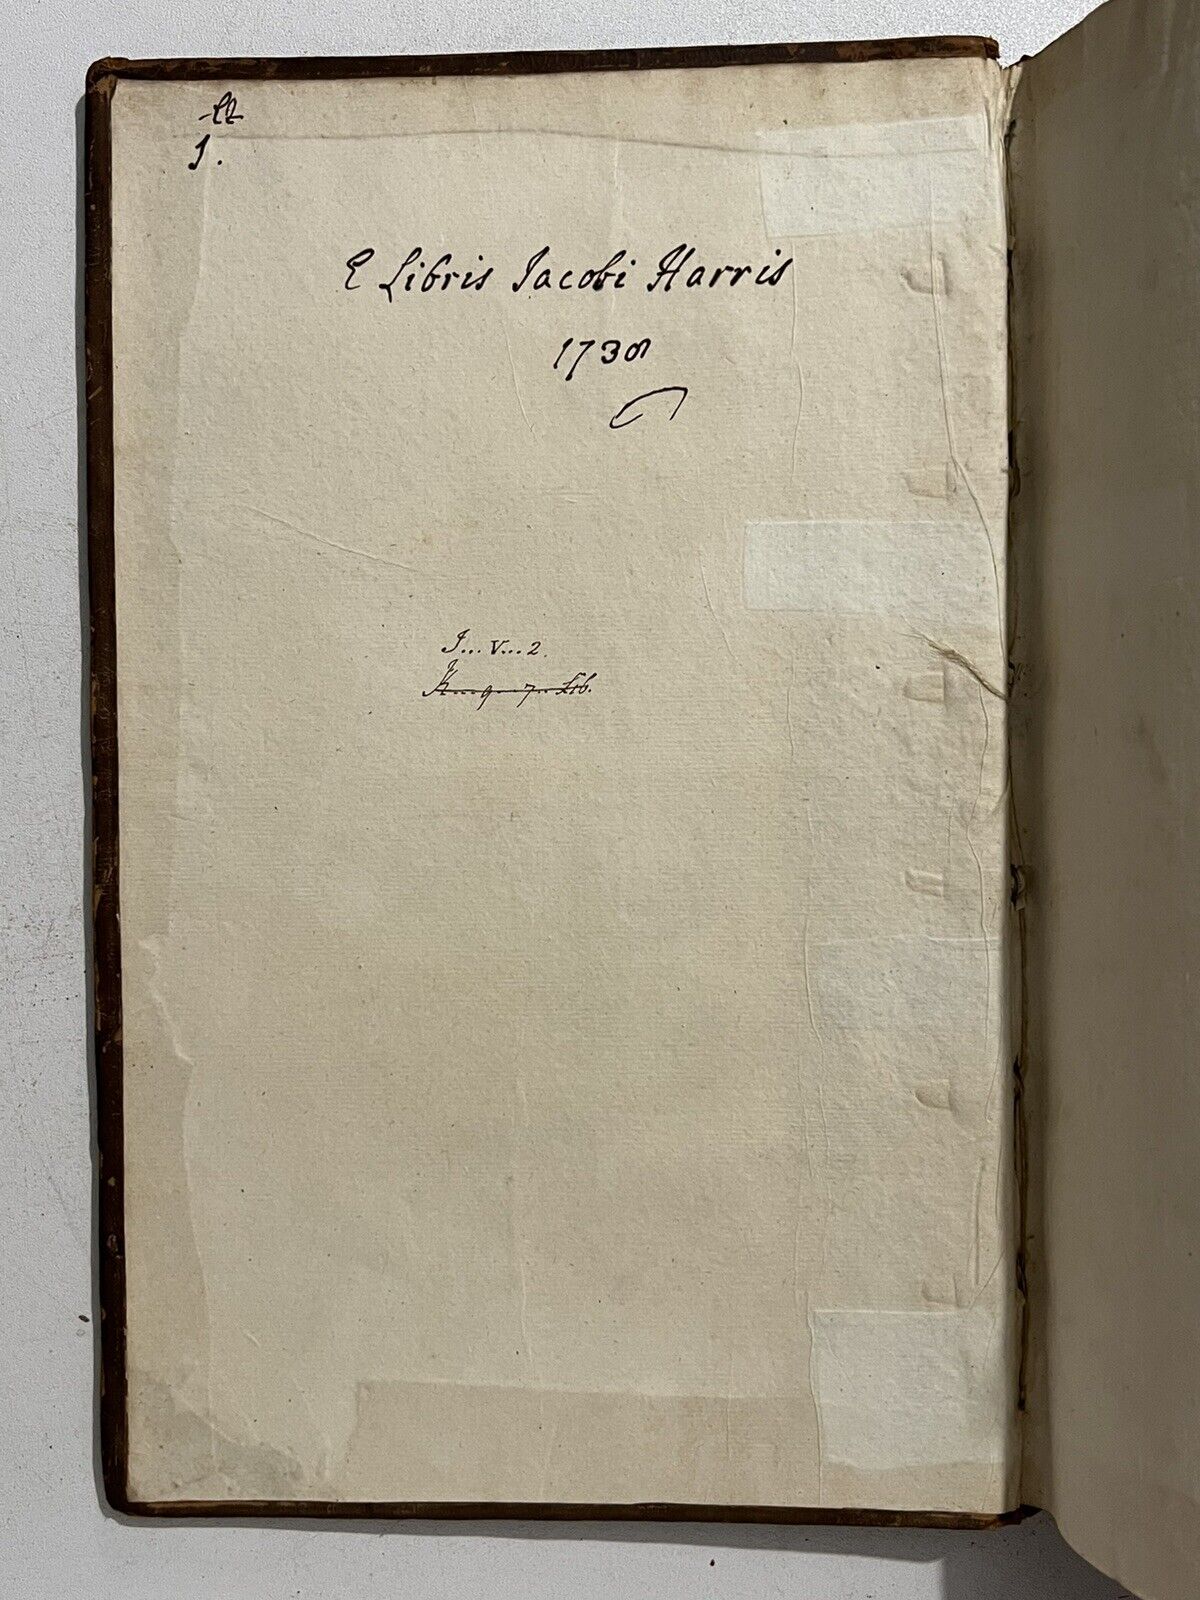 1.
E Libris Iacobi Harris
1738
J... V... 2.
K... 9... 7... Lib.